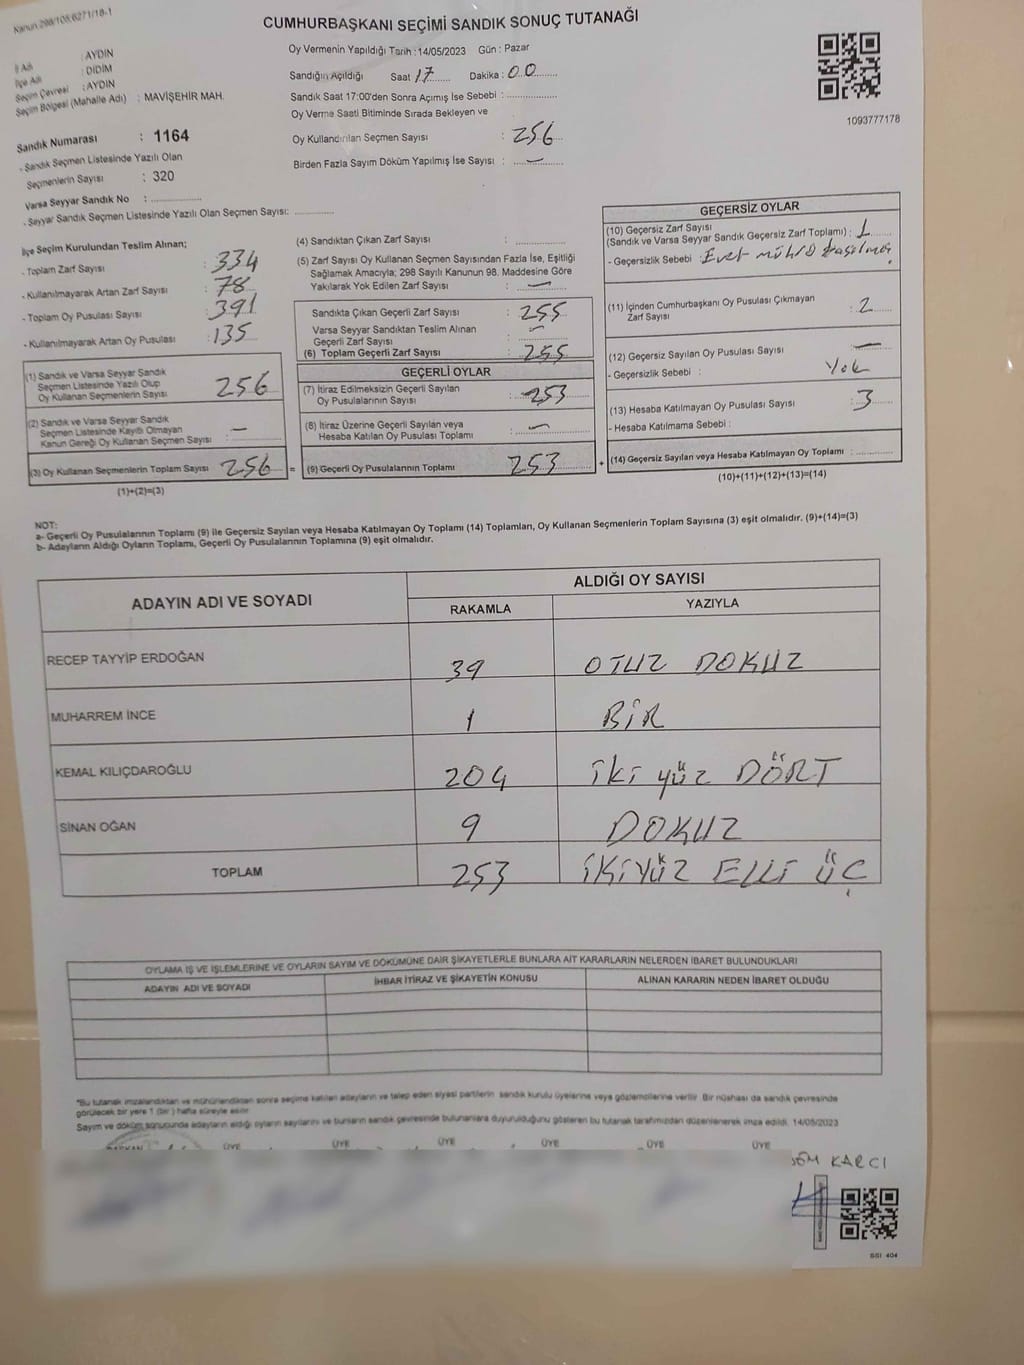 Kanun:298/105,6271/18-1
CUMHURBAŞKANI SEÇİMİ SANDIK SONUÇ TUTANAĞI
İl Adı : AYDIN
İlçe Adı : DİDİM
Seçim Çevresi : AYDIN
Seçim Bölgesi (Mahalle Adı) : MAVİŞEHİR MAH.
Sandık Numarası : 1164
- Sandık Seçmen Listesinde Yazılı Olan
Seçmenlerin Sayısı : 320
Varsa Seyyar Sandık No :
- Seyyar Sandık Seçmen Listesinde Yazılı Olan Seçmen Sayısı:
Oy Vermenin Yapıldığı Tarih : 14/05/2023 Gün : Pazar
Sandığın Açıldığı Saat 17 Dakika : 00
Sandık Saat 17:00'den Sonra Açımış İse Sebebi :
Oy Verme Saati Bitiminde Sırada Bekleyen ve
Oy Kullandırılan Seçmen Sayısı : 256
Birden Fazla Sayım Döküm Yapılmış İse Sayısı : —
1093777178
İlçe Seçim Kurulundan Teslim Alınan;
- Toplam Zarf Sayısı : 334
- Kullanılmayarak Artan Zarf Sayısı : 78
- Toplam Oy Pusulası Sayısı : 391
- Kullanılmayarak Artan Oy Pusulası : 135
(1) Sandık ve Varsa Seyyar Sandık
Seçmen Listesinde Yazılı Olup
Oy Kullanan Seçmenlerin Sayısı : 256
(2) Sandık ve Varsa Seyyar Sandık
Seçmen Listesinde Kayıtlı Olmayan
Kanun Gereği Oy Kullanan Seçmen Sayısı : —
(3) Oy Kullanan Seçmenlerin Toplam Sayısı 256 =
(1)+(2)=(3)
(4) Sandıktan Çıkan Zarf Sayısı :
(5) Zarf Sayısı Oy Kullanan Seçmen Sayısından Fazla İse, Eşitliği
Sağlamak Amacıyla; 298 Sayılı Kanunun 98. Maddesine Göre
Yakılarak Yok Edilen Zarf Sayısı : —
Sandıkta Çıkan Geçerli Zarf Sayısı : 255
Varsa Seyyar Sandıktan Teslim Alınan
Geçerli Zarf Sayısı : —
(6) Toplam Geçerli Zarf Sayısı : 255
GEÇERLİ OYLAR
(7) İtiraz Edilmeksizin Geçerli Sayılan
Oy Pusulalarının Sayısı : 253
(8) İtiraz Üzerine Geçerli Sayılan veya
Hesaba Katılan Oy Pusulası Toplamı : —
(9) Geçerli Oy Pusulalarının Toplamı 253 +
GEÇERSİZ OYLAR
(10) Geçersiz Zarf Sayısı
(Sandık ve Varsa Seyyar Sandık Geçersiz Zarf Toplamı) : 1
- Geçersizlik Sebebi : Evet mührü basılmış
(11) İçinden Cumhurbaşkanı Oy Pusulası Çıkmayan
Zarf Sayısı : 2
(12) Geçersiz Sayılan Oy Pusulası Sayısı : —
- Geçersizlik Sebebi : Yok
(13) Hesaba Katılmayan Oy Pusulası Sayısı : 3
- Hesaba Katılmama Sebebi :
(14) Geçersiz Sayılan veya Hesaba Katılmayan Oy Toplamı :
(10)+(11)+(12)+(13)=(14)
NOT:
a- Geçerli Oy Pusulalarının Toplamı (9) ile Geçersiz Sayılan veya Hesaba Katılmayan Oy Toplamı (14) Toplamları, Oy Kullanan Seçmenlerin Toplam Sayısına (3) eşit olmalıdır. (9)+(14)=(3)
b- Adayların Aldığı Oyların Toplamı, Geçerli Oy Pusulalarının Toplamına (9) eşit olmalıdır.
ADAYIN ADI VE SOYADI
ALDIĞI OY SAYISI
RAKAMLA YAZIYLA
RECEP TAYYİP ERDOĞAN 39 OTUZ DOKUZ
MUHARREM İNCE 1 BİR
KEMAL KILIÇDAROĞLU 204 iki yüz DÖRT
SİNAN OĞAN 9 DOKUZ
TOPLAM 253 İKİYÜZ ELLİ ÜÇ
OYLAMA İŞ VE İŞLEMLERİNE VE OYLARIN SAYIM VE DÖKÜMÜNE DAİR ŞİKAYETLERLE BUNLARA AİT KARARLARIN NELERDEN İBARET BULUNDUKLARI
ADAYIN ADI VE SOYADI İHBAR İTİRAZ VE ŞİKAYETİN KONUSU ALINAN KARARIN NEDEN İBARET OLDUĞU
*Bu tutanak imzalandıktan ve mühürlendikten sonra seçime katılan adayların ve talep eden siyasi partilerin sandık kurulu üyelerine veya gözlemcilerine verilir. Bir nüshası da sandık çevresinde
görülecek bir yere 1 (bir) hafta süreyle asılır.
Sayım ve döküm sonucunda adayların aldığı oyların sayılarını ve bunların sandık çevresinde bulunanlara duyurulduğunu gösteren bu tutanak tarafımızdan düzenlenerek imza edildi. 14/05/2023
BAŞKAN ÜYE ÜYE ÜYE ÜYE ÜYE ÜYE
KARCI